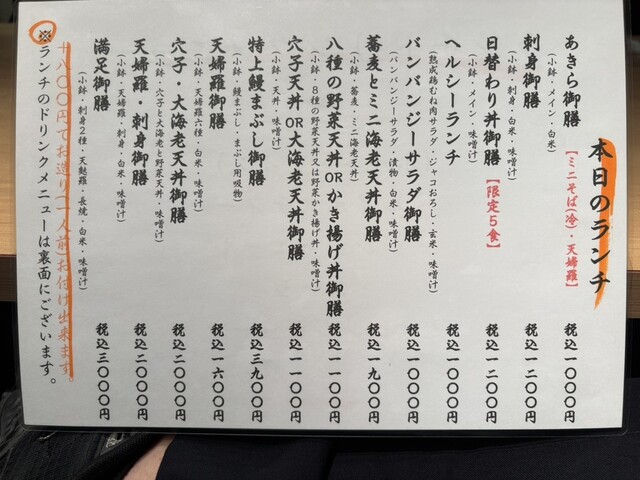 本日のランチ
あきら御膳【ミニそば(冷)・天婦羅】税込一〇〇〇円
(小鉢・メイン・白米)
刺身御膳 税込一二〇〇円
(小鉢・刺身・白米・味噌汁)
日替わり丼御膳【限定5食】税込一二〇〇円
(小鉢・メイン・味噌汁)
ヘルシーランチ 税込一〇〇〇円
(熟成鶏むね肉サラダ・ジャコおろし・玄米・味噌汁)
バンバンジーサラダ御膳 税込一〇〇〇円
(バンバンジーサラダ・漬物・白米・味噌汁)
蕎麦とミニ海老天丼御膳 税込一九〇〇円
(小鉢・蕎麦・ミニ海老天丼)
八種の野菜天丼ORかき揚げ丼御膳 税込一一〇〇円
(小鉢・8種の野菜天丼又は野菜かき揚げ丼・味噌汁)
穴子天丼OR大海老天丼御膳 税込一一〇〇円
(小鉢・天丼・味噌汁)
特上鰻まぶし御膳 税込三九〇〇円
(小鉢・鰻まぶし・まぶし用吸物)
天婦羅御膳 税込一六〇〇円
(小鉢・天婦羅六種・白米・味噌汁)
穴子・大海老天丼御膳 税込二〇〇〇円
(小鉢・穴子と大海老と野菜天丼・味噌汁)
天婦羅・刺身御膳 税込二〇〇〇円
(小鉢・天婦羅・刺身・白米・味噌汁)
満足御膳 税込三〇〇〇円
(小鉢・刺身2種・天麩羅・長焼・白米・味噌汁)
十八〇〇円でお造り(一人前)お付け出来ます。
※ランチのドリンクメニューは裏面にございます。